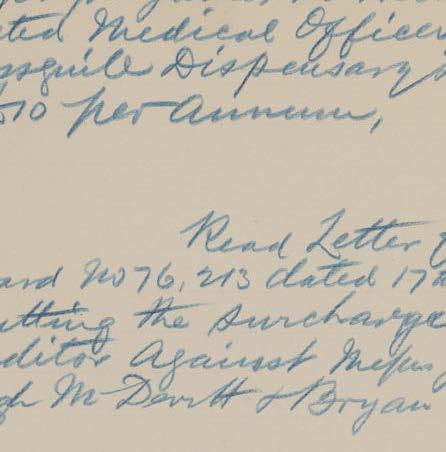 ted Medical Officer
Dispensary
per Annum,
Read Letter
ard No 76,213 dated 17
tting the surcharge
ditor Against Messrs
gh McDevitt & Bryan